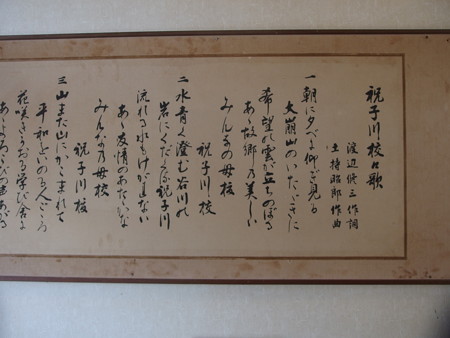 祝子川校々歌
渡辺修三作詞
土持昭郎作曲
一 朝に夕べに仰ぎ見る
大崩山のいただきに
希望の雲が立ちのぼる
あゝ故郷の美しい
みんなの母校
祝子川校
二 水青く澄む谷川の
岩にくだける祝子川
流れる水もけがれない
あゝ友情のあたたかな
みんなの母校
祝子川校
三 山また山にかこまれて
平和をいのる人ごころ
花咲きかおる学び舎に